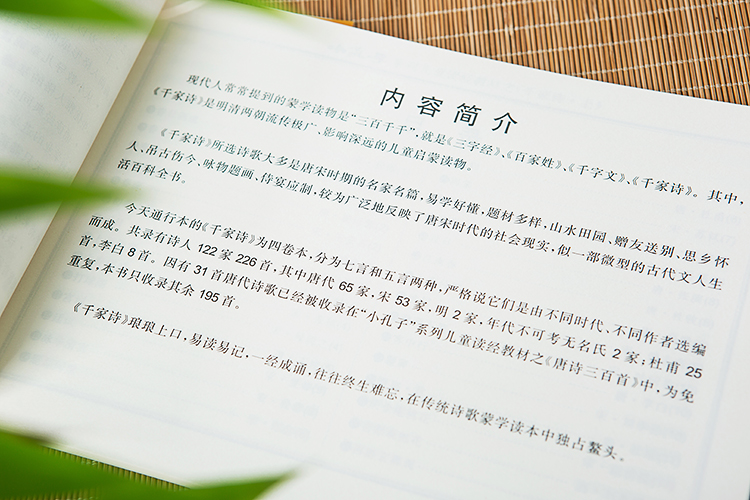 内容简介
现代人常常提到的蒙学读物是“三百千千”，就是《三字经》、《百家姓》、《千字文》、《千家诗》。其中，
《千家诗》是明清两朝流传极广、影响深远的儿童启蒙读物。
《千家诗》所选诗歌大多是唐宋时期的名家名篇，易学好懂，题材多样，山水田园、赠友送别、思乡怀
人、吊古伤今、咏物题画、侍宴应制，较为广泛地反映了唐宋时代的社会现实，似一部微型的古代文人生
活百科全书。
今天通行本的《千家诗》为四卷本，分为七言和五言两种，严格说它们是由不同时代、不同作者选编
而成。共录有诗人122家226首，其中唐代65家，宋53家，明2家，年代不可考无名氏2家；杜甫25
首，李白8首。因有31首唐代诗歌已经被收录在“小孔子”系列儿童读经教材之《唐诗三百首》中，为免
重复，本书只收录其余195首。
《千家诗》琅琅上口，易读易记，一经成诵，往往终生难忘，在传统诗歌蒙学读本中独占鳌头。